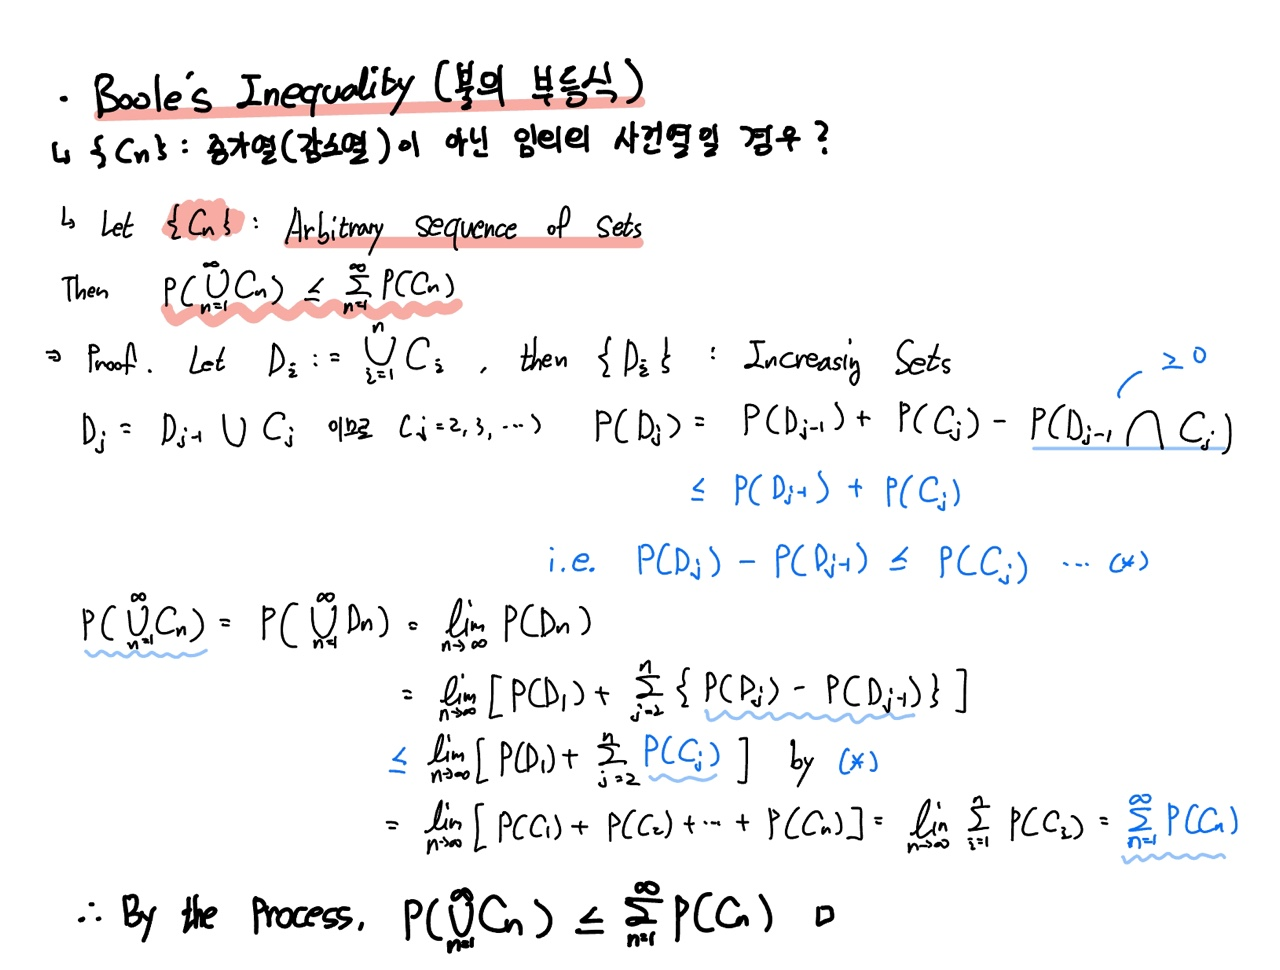 · Boole's Inequality (불의 부등식)
↳ {Cn} : 증가열(감소열)이 아닌 임의의 사건열일 경우?
↳ Let {Cn} : Arbitrary sequence of sets
Then P(∪_{n=1}^{∞} Cn) ≤ Σ_{n=1}^{∞} P(Cn)
⇒ Proof. Let D_i := ∪_{i=1}^{n} C_i , then {D_i} : Increasing Sets
≥ 0
D_j = D_{j-1} ∪ C_j 이므로 (j=2, 3, ...) P(D_j) = P(D_{j-1}) + P(C_j) - P(D_{j-1} ∩ C_j)
≤ P(D_{j-1}) + P(C_j)
i.e. P(D_j) - P(D_{j-1}) ≤ P(C_j) ... (*)
P(∪_{n=1}^{∞} Cn) = P(∪_{n=1}^{∞} Dn) = lim_{n→∞} P(Dn)
= lim_{n→∞} [P(D_1) + Σ_{j=2}^{n} {P(D_j) - P(D_{j-1})}]
≤ lim_{n→∞} [P(D_1) + Σ_{j=2}^{n} P(C_j)] by (*)
= lim_{n→∞} [P(C_1) + P(C_2) + ... + P(C_n)] = lim_{n→∞} Σ_{i=1}^{n} P(C_i) = Σ_{n=1}^{∞} P(Cn)
∴ By the Process, P(∪_{n=1}^{∞} Cn) ≤ Σ_{n=1}^{∞} P(Cn) □